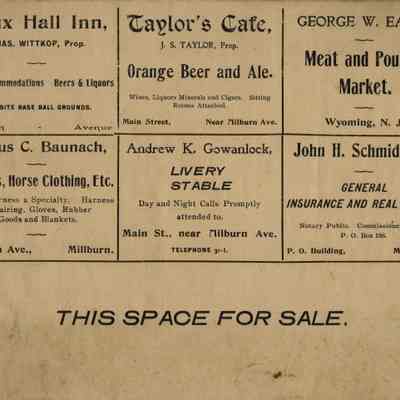 ux Hall Inn,
AS. WITTKOP, Prop.
ommodations Beers & Liquors
SITE BASE BALL GROUNDS.
- Avenue
Taylor's Cafe,
J. S. TAYLOR, Prop.
Orange Beer and Ale.
Wines, Liquors Minerals and Cigars. Sitting
Rooms Attached.
Main Street, Near Milburn Ave.
GEORGE W. EA
Meat and Pou
Market.
Wyoming, N. J
us C. Baunach,
, Horse Clothing, Etc.
arness a Specialty. Harness
airing, Gloves, Rubber
Goods and Blankets.
n Ave., Millburn.
Andrew K. Gowanlock,
LIVERY
STABLE
Day and Night Calls Promptly
attended to.
Main St., near Milburn Ave.
TELEPHONE 31-1.
John H. Schmid
GENERAL
INSURANCE AND REAL
Notary Public. Commissione
P. O. Box 136.
P. O. Building, M
THIS SPACE FOR SALE.